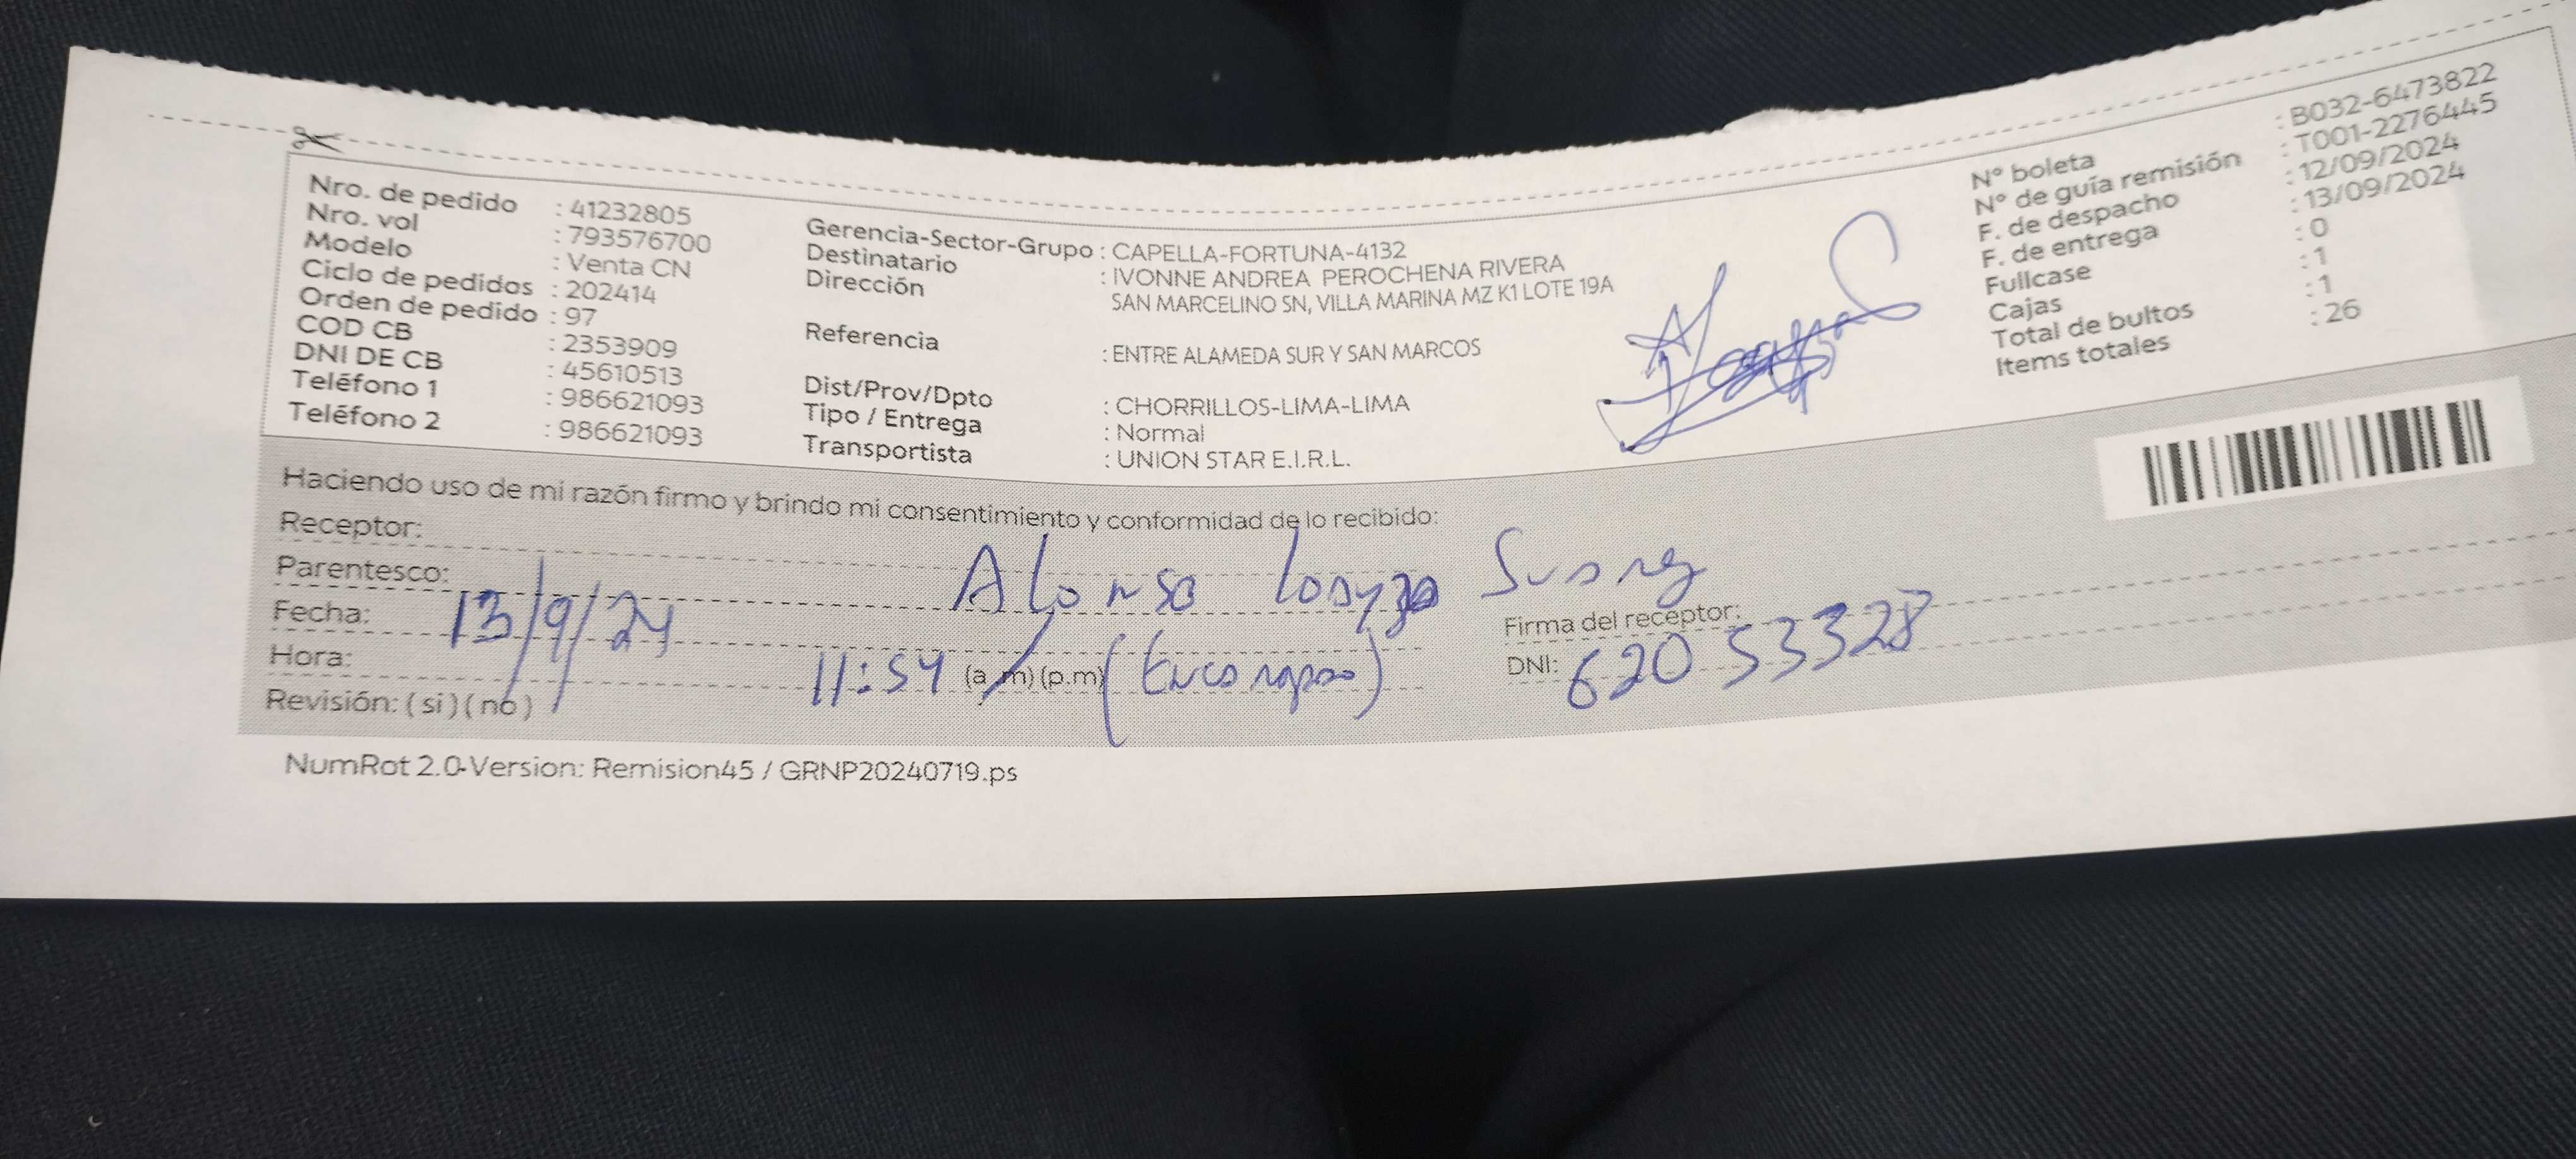 Nro. de pedido : 41232805
Nro. vol : 793576700
Modelo : Venta CN
Ciclo de pedidos : 202414
Orden de pedido : 97
COD CB : 2353909
DNI DE CB : 45610513
Teléfono 1 : 986621093
Teléfono 2 : 986621093
Gerencia-Sector-Grupo : CAPELLA-FORTUNA-4132
Destinatario : IVONNE ANDREA PEROCHENA RIVERA
Dirección SAN MARCELINO SN, VILLA MARINA MZ K1 LOTE 19A
Referencia : ENTRE ALAMEDA SUR Y SAN MARCOS
Dist/Prov/Dpto : CHORRILLOS-LIMA-LIMA
Tipo / Entrega : Normal
Transportista : UNION STAR E.I.R.L.
N° boleta : B032-6473822
N° de guía remisión : T001-2276445
F. de despacho : 12/09/2024
F. de entrega : 13/09/2024
Fullcase : 0
Cajas : 1
Total de bultos : 1
Items totales : 26
Haciendo uso de mi razón firmo y brindo mi consentimiento y conformidad de lo recibido:
Receptor: Alonso
Parentesco:
Fecha: 13/9/24
Firma del receptor:
Hora: 11:54 (a.m) (p.m)
DNI: 62053328
Revisión: ( si ) ( no )
NumRot 2.0-Version: Remision45 / GRNP20240719.ps